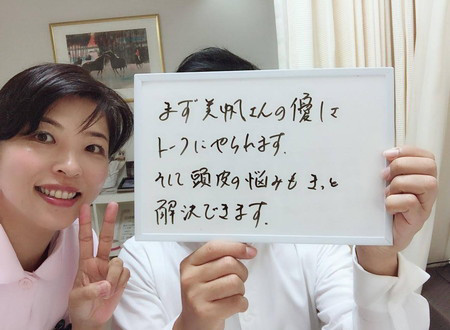 まず美帆さんの優しさ
トークにやられます。
そして頭皮の悩みもきっと
解決できます。